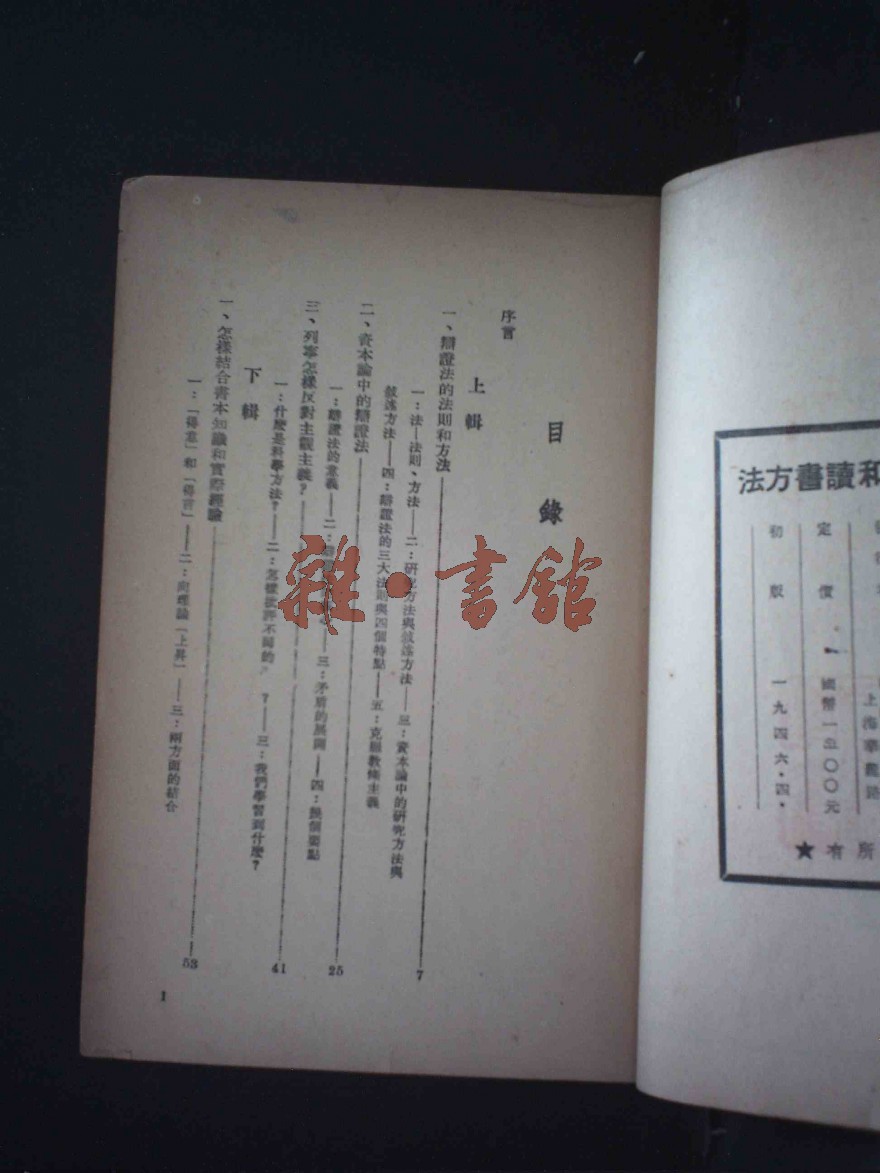 和讀書方法
上海華龍路
定價 國幣一五〇〇元
初版 一九四六・四・
所有★
目錄
序言
上輯
一、辯證法的法則和方法 7
一：法—法則、方法—二：研究方法與敍述方法—三：資本論中的研究方法與
敍述方法—四：辯證法的三大法則與四個特點—五：克服教條主義
二、資本論中的辯證法 25
一：辯證法的意義—二：三：矛盾的展開—四：幾個要點
三、列寧怎樣反對主觀主義？ 41
一：什麼是科學方法？—二：怎樣批評不同的？—三：我們學習到什麼？
下輯
一、怎樣結合書本知識和實際經驗 53
一：「得意」和「得言」—二：向理論「上昇」—三：兩方面的結合
1
雜・書館